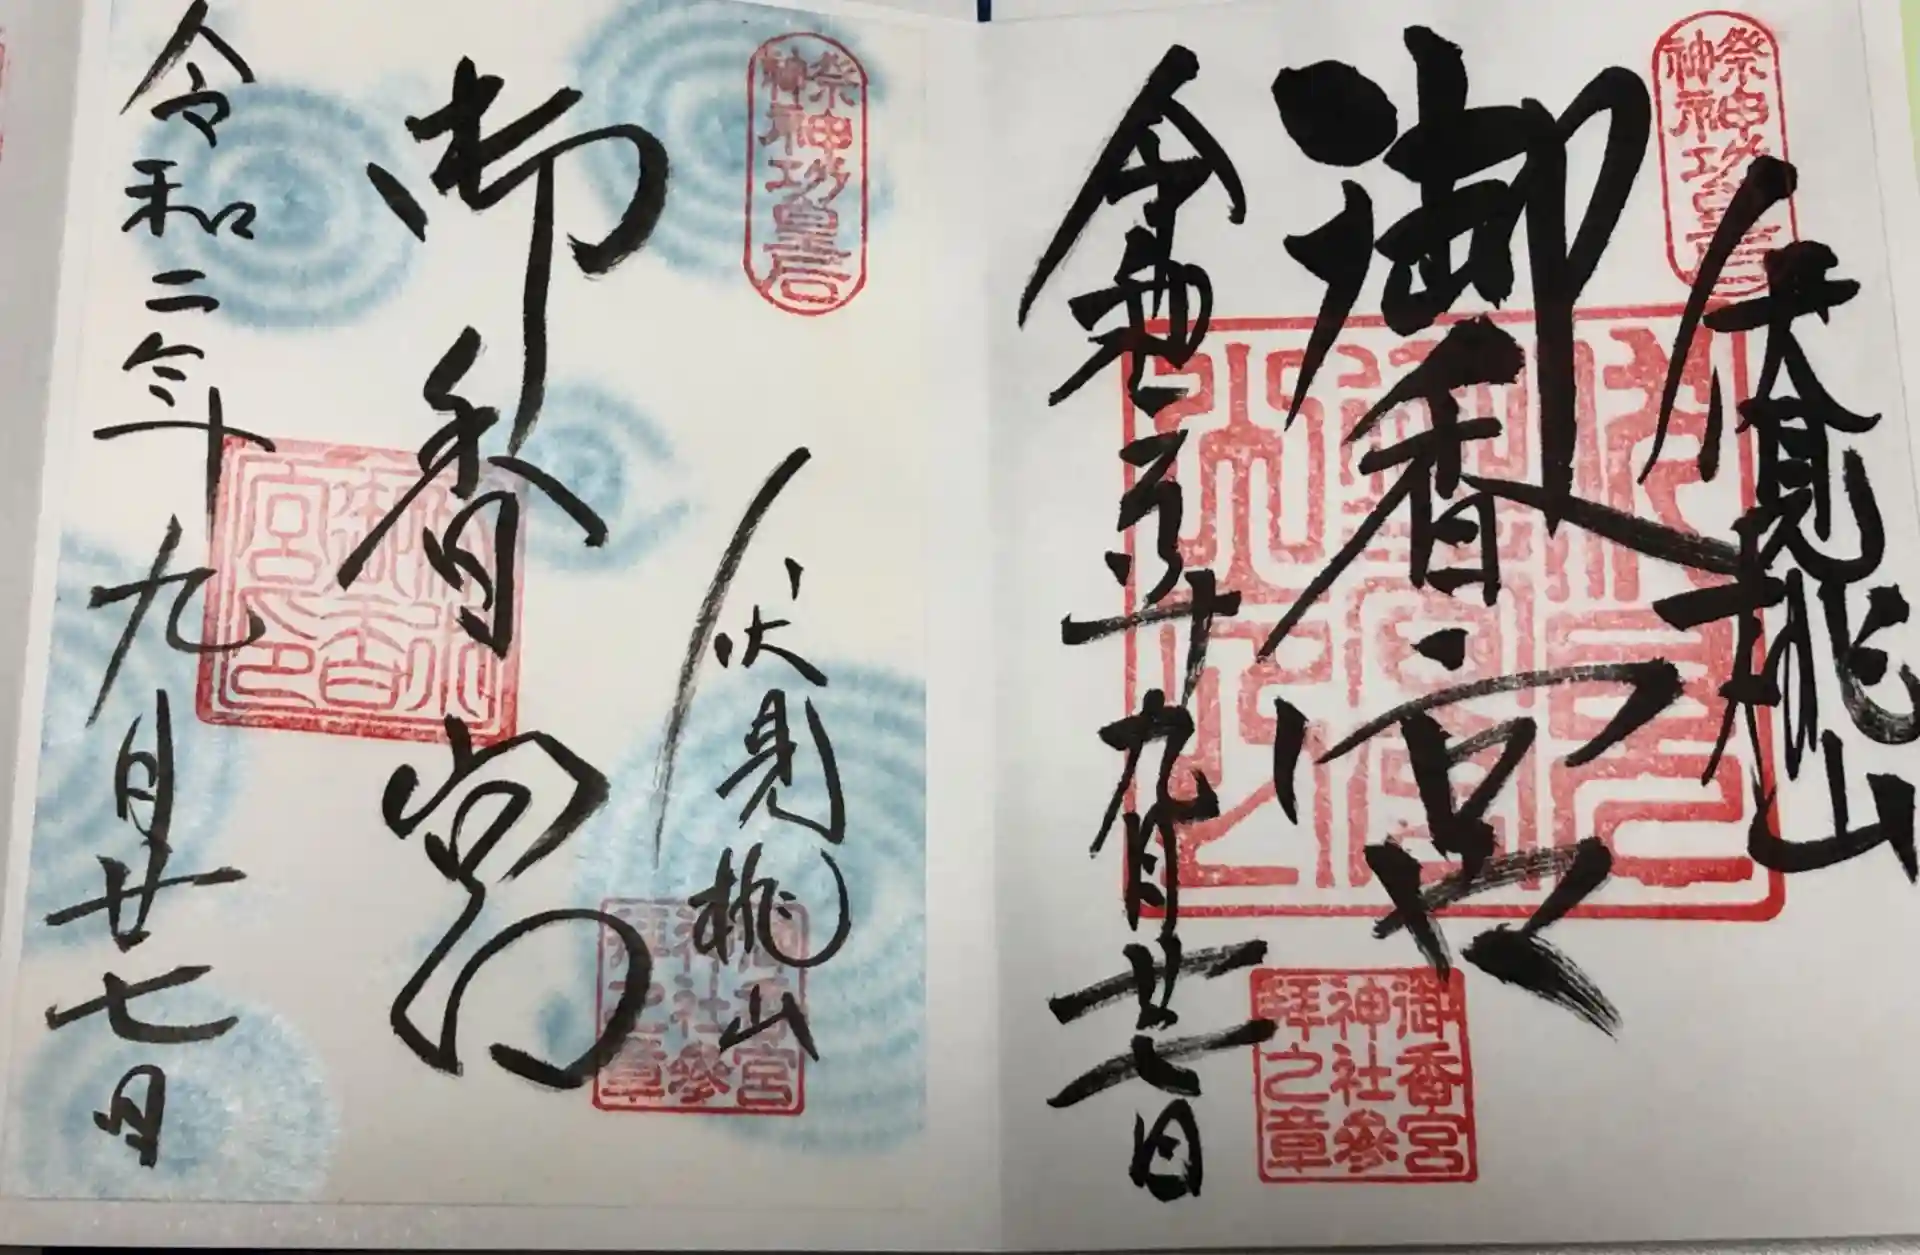 祭神神功皇后
伏見桃山
御香宮
令和二年九月廿七日
御香宮
神社參
拜之章
祭神神功皇后
伏見桃山
御香宮
令和二年九月廿七日
御香宮
神社參
拜之章